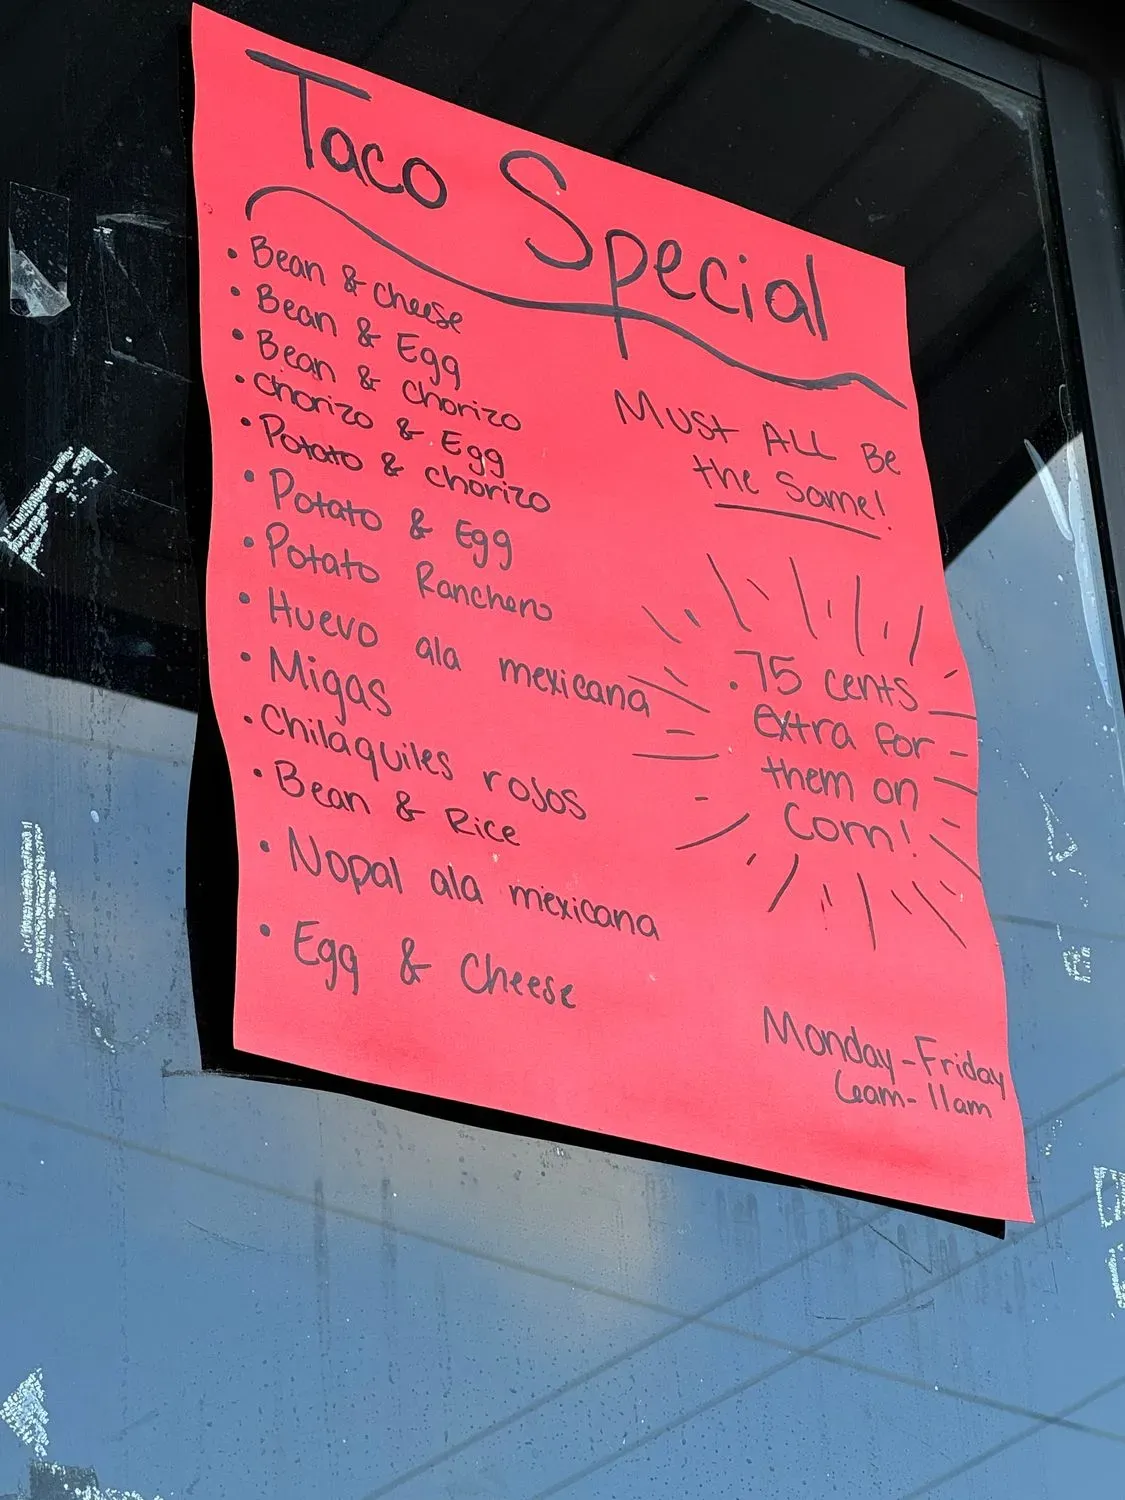 Taco Special
• Bean & cheese
• Bean & Egg
• Bean & chorizo
• chorizo & Egg
• Potato & chorizo
• Potato & Egg
• Potato Ranchero
• Huevo ala mexicana
• Migas
• Chilaquiles rojos
• Bean & Rice
• Nopal ala mexicana
• Egg & Cheese
Must ALL Be
the Same!
.75 cents
extra for
them on
Corn!
Monday-Friday
6am-11am